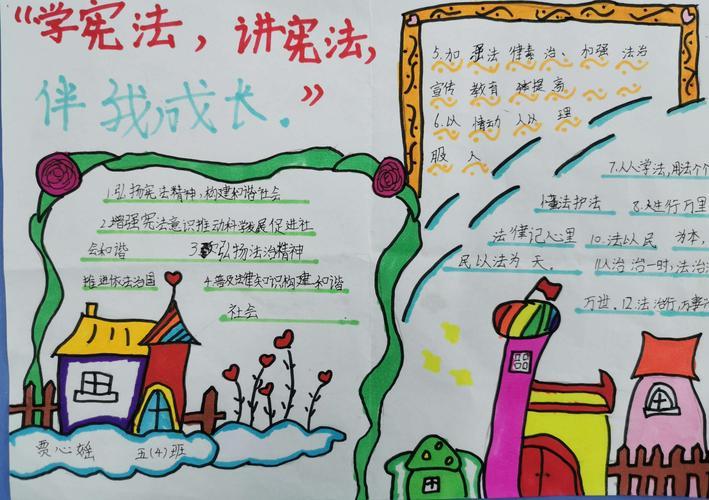 “学宪法，讲宪法，
伴我成长．”
1.弘扬宪法精神,构建和谐社会
2.增强宪法意识推动科学发展促进社
会和谐 3弘扬法治精神
推进依法治国 4.普及法律知识构建和谐
社会
贾心 五(4)班
5.加强法律素治、加强法治
宣传教育 提高
6.以情动人以理
服人
7.人人学法,用法个个
懂法护法 8.人生行万里
法律记心里 10.法以民为本,
民以法为天. 11人治治一时,法治治
万世. 12.法治行,万事